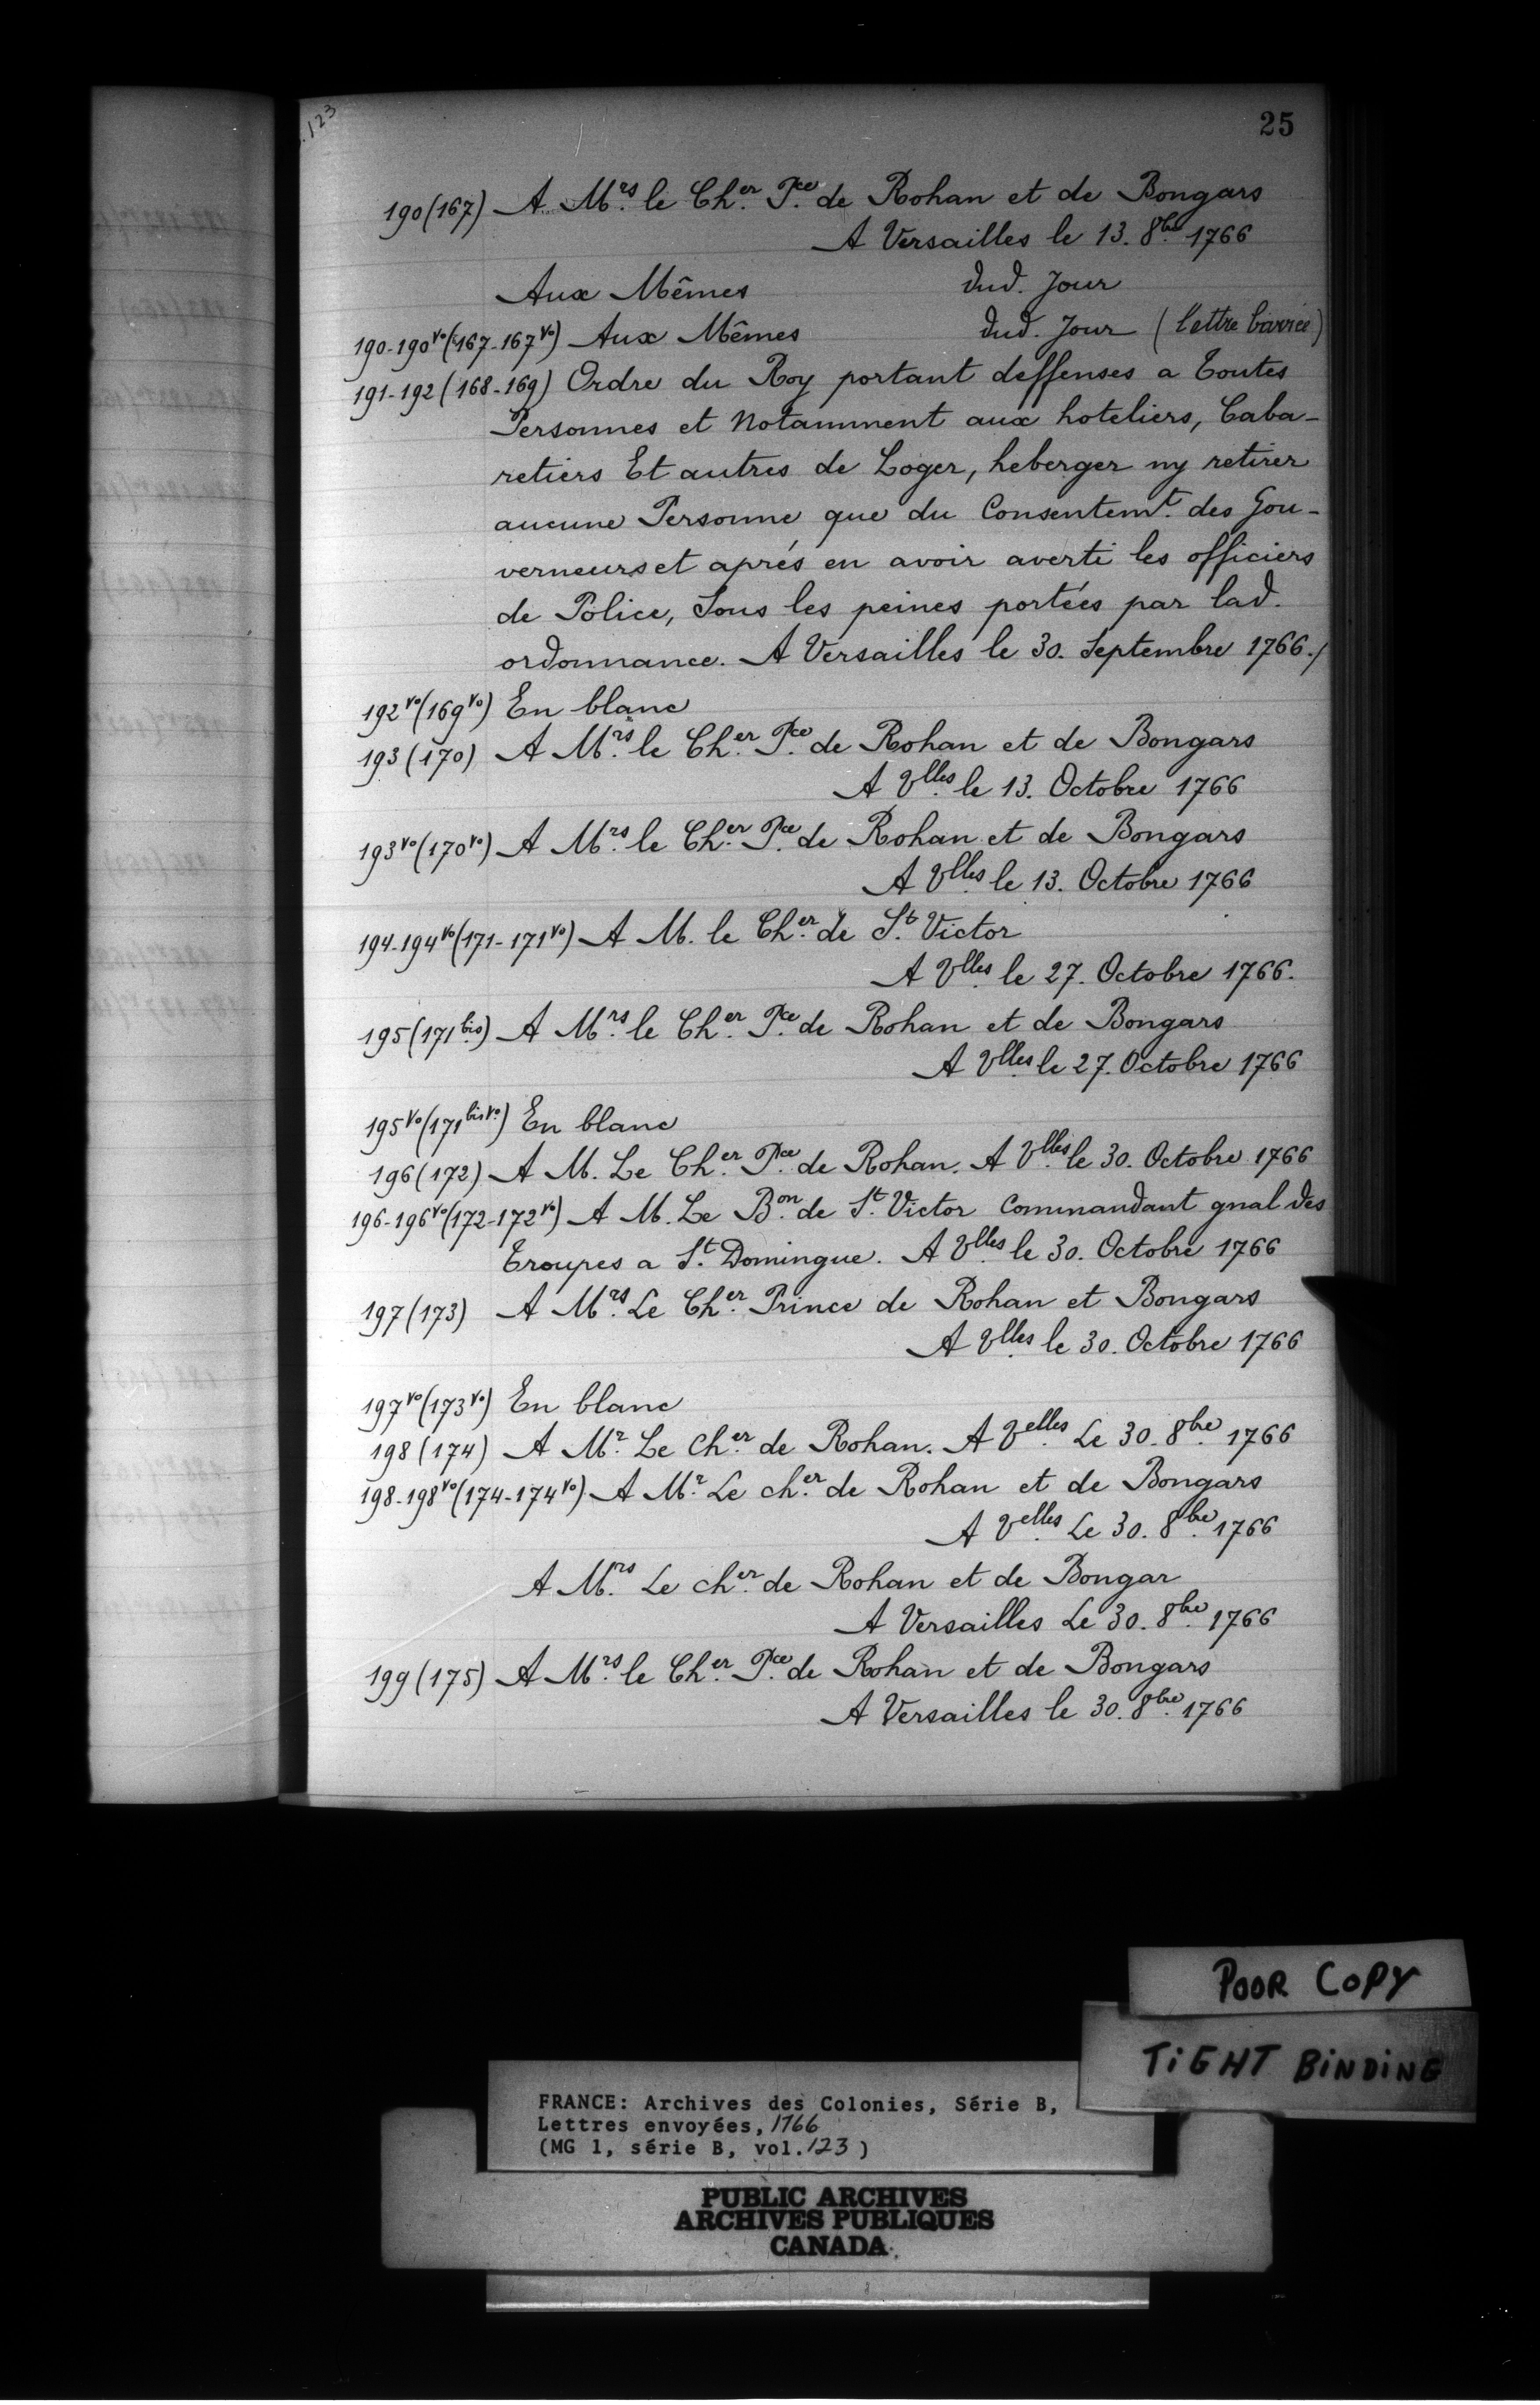 123
25
190(167) A Mrs. le Cher. Pce. de Rohan et de Bongars
A Versailles le 13. 8bre 1766
Aux Mêmes dud. Jour
190-190vo(167-167vo) Aux Mêmes dud. Jour (lettre barrée)
191-192 (168-169) Ordre du Roy portant deffenses a Toutes
Personnes et Notamment aux hoteliers, Caba-
retiers Et autres de Loger, heberger ny retirer
aucune Personne que du Consentemt. des Gou-
verneurs et aprés en avoir averti les officiers
de Police, Sous les peines portées par lad.
ordonnance. A Versailles le 30. Septembre 1766./
192vo(169vo) En blanc
193 (170) A Mrs. le Cher. Pce. de Rohan et de Bongars
A Vlles. le 13. Octobre 1766
193vo(170vo) A Mrs. le Cher. Pce. de Rohan et de Bongars
A Vlles. le 13. Octobre 1766
194-194vo(171-171vo) A M. le Cher. de St. Victor
A Vlles. le 27. Octobre 1766.
195(171bis) A Mrs. le Cher. Pce. de Rohan et de Bongars
A Vlles. le 27. Octobre 1766
195vo(171bis vo) En blanc
196(172) A M. Le Cher. Pce. de Rohan. A Vlles. le 30. Octobre 1766
196-196vo(172-172vo) A M. Le Bon. de St. Victor Commandant gnal des
Troupes a St. Domingue. A Vlles. le 30. Octobre 1766
197(173) A Mrs. Le Cher. Prince de Rohan et Bongars
A Vlles. le 30. Octobre 1766
197vo(173vo) En blanc
198 (174) A Mr. Le cher. de Rohan. A Velles. Le 30. 8bre. 1766
198-198vo(174-174vo) A Mr. Le cher. de Rohan et de Bongars
A Velles. Le 30. 8bre. 1766
A Mrs. Le cher. de Rohan et de Bongar
A Versailles Le 30. 8bre. 1766
199 (175) A Mrs. le Cher. Pce. de Rohan et de Bongars
A Versailles le 30. 8bre. 1766
POOR COPY
TIGHT BINDING
FRANCE: Archives des Colonies, Série B,
Lettres envoyées, 1766
(MG 1, série B, vol. 123 )
PUBLIC ARCHIVES
ARCHIVES PUBLIQUES
CANADA